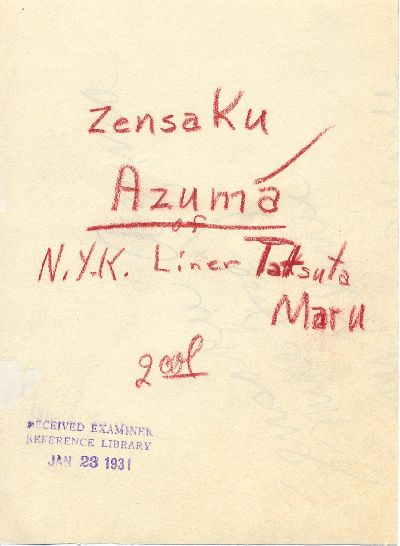 Zensaku
Azuma
of
N.Y.K. Liner Tatsuta
Maru
2 col
RECEIVED EXAMINER
REFERENCE LIBRARY
JAN 23 1931